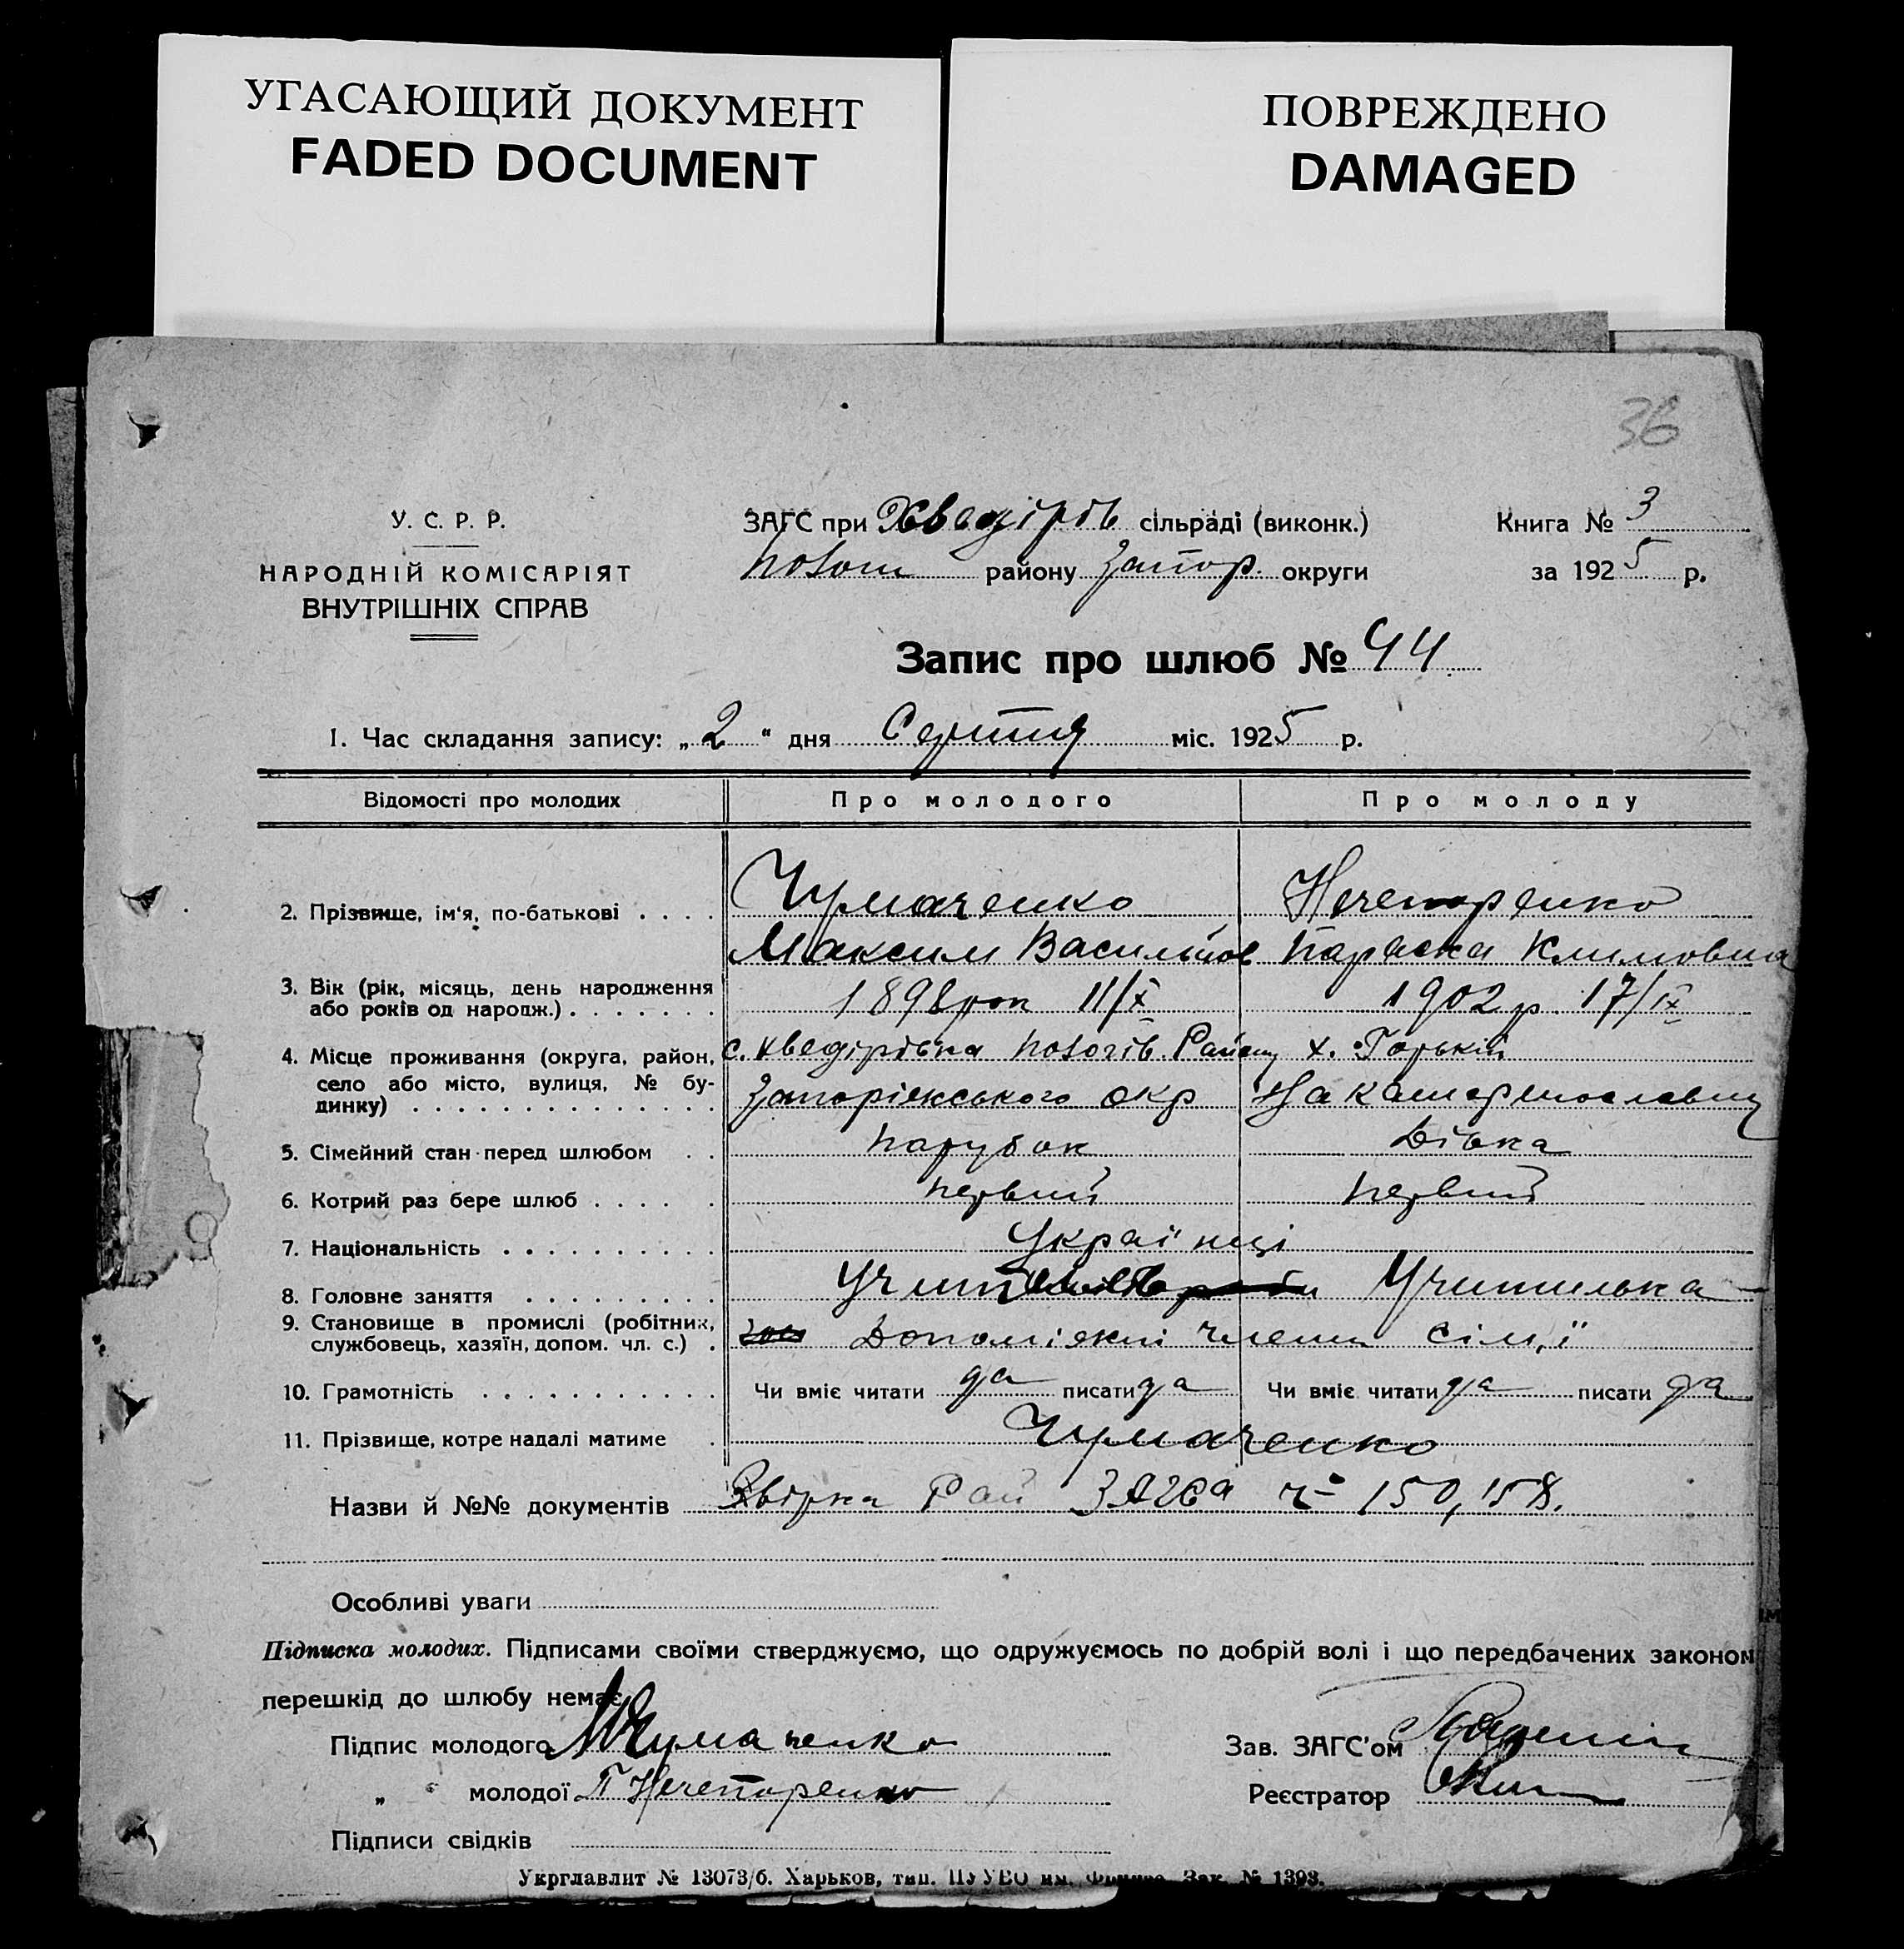 УГАСАЮЩИЙ ДОКУМЕНТ
FADED DOCUMENT
ПОВРЕЖДЕНО
DAMAGED
36
У. С. Р. Р.
НАРОДНІЙ КОМІСАРІЯТ
ВНУТРІШНІХ СПРАВ
ЗАГС при Хведірів сільраді (виконк.)
району Запор. округи
Книга № 3
за 1925 р.
Запис про шлюб № 44
1. Час складання запису: „2“ дня Серпня міс. 1925 р.
Відомості про молодих Про молодого Про молоду
2. Прізвище, ім'я, по-батькові . . . . Чумаченко Нечепоренко
Максим Васильов Параска Климовна
3. Вік (рік, місяць, день народження
або років од народж.) . . . . . . . 1898 рок 11/X 1902 р. 17/IX
4. Місце проживання (округа, район, с. Хведірівка Новогів. Району х. Горький
село або місто, вулиця, № бу-
динку) . . . . . . . . . . . . . . Запоріжського окр На Катеринославщ
5. Сімейний стан перед шлюбом . . парубок Дівка
6. Котрий раз бере шлюб . . . . . первий первий
7. Національність . . . . . . . . . . Українці
8. Головне заняття . . . . . . . . . Учитель Учителька
9. Становище в промислі (робітник,
службовець, хазяїн, допом. чл. с.) . Допоміжні члени сім,ї
10. Грамотність . . . . . . . . . . . Чи вміє читати да писати да Чи вміє читати да писати да
11. Прізвище, котре надалі матиме . Чумаченко
Назви й №№ документів Звірка Рай ЗАГСа ч– 150, 158.
Особливі уваги
Підписка молодих. Підписами своїми стверджуємо, що одружуємось по добрій волі і що передбачених законом
перешкід до шлюбу немає
Підпис молодого МЧумаченко
Зав. ЗАГС'ом
„ молодої П Нечепоренко
Реєстратор
Підписи свідків
Укрглавлит № 13073/б. Харьков, тип. ПУУВО им. Фрунзе. Зак. № 1393.